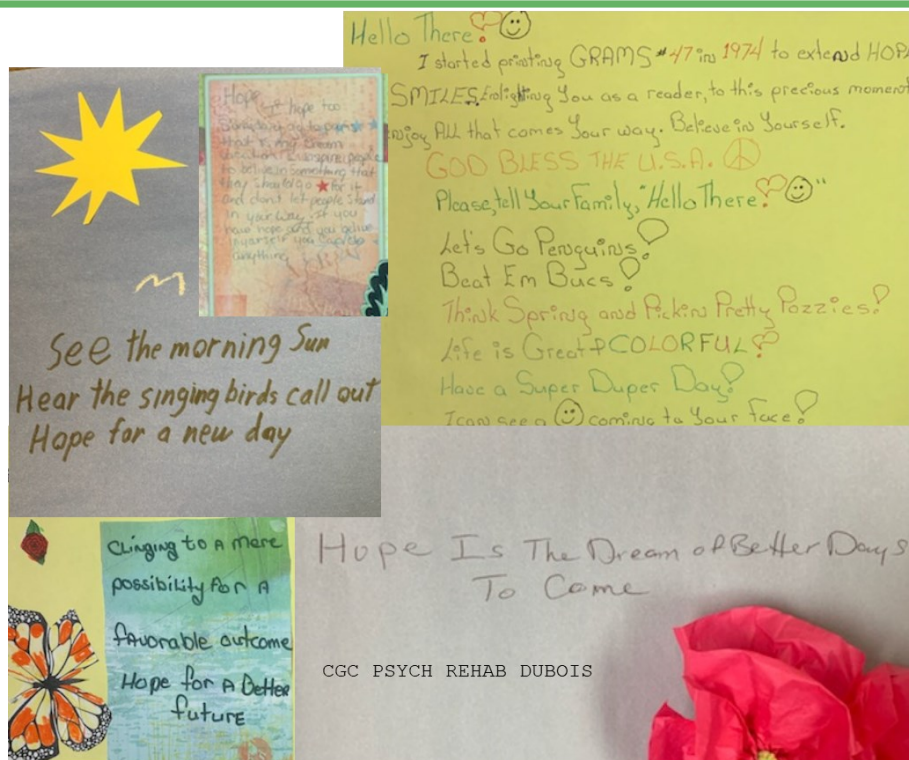 Hello There!
I started printing GRAMS #47 in 1974 to extend HOPE
SMILES, Enlighting You as a reader, to this precious moment
Enjoy ALL that comes Your way. Believe in Yourself.
GOD BLESS THE U.S.A.
Please, tell Your Family, "Hello There! "
Let's Go Penguins!
Beat Em Bucs!
Think Spring and Pickin Pretty Pozzies!
Life is Great & COLORFUL!
Have a Super Duper Day!
I can see a coming to Your face!
Hope
I hope too
Someday go to
that is my dream
inspire people
to believe in something that
they should go for it
and don't let people stand
in your way. If you
have hope and you believe
in yourself you can do
anything
See the morning Sun
Hear the singing birds call out
Hope for a new day
Clinging to a mere
possibility for A
favorable outcome
Hope for A Better
future
Hope Is The Dream of Better Days
To Come
CGC PSYCH REHAB DUBOIS